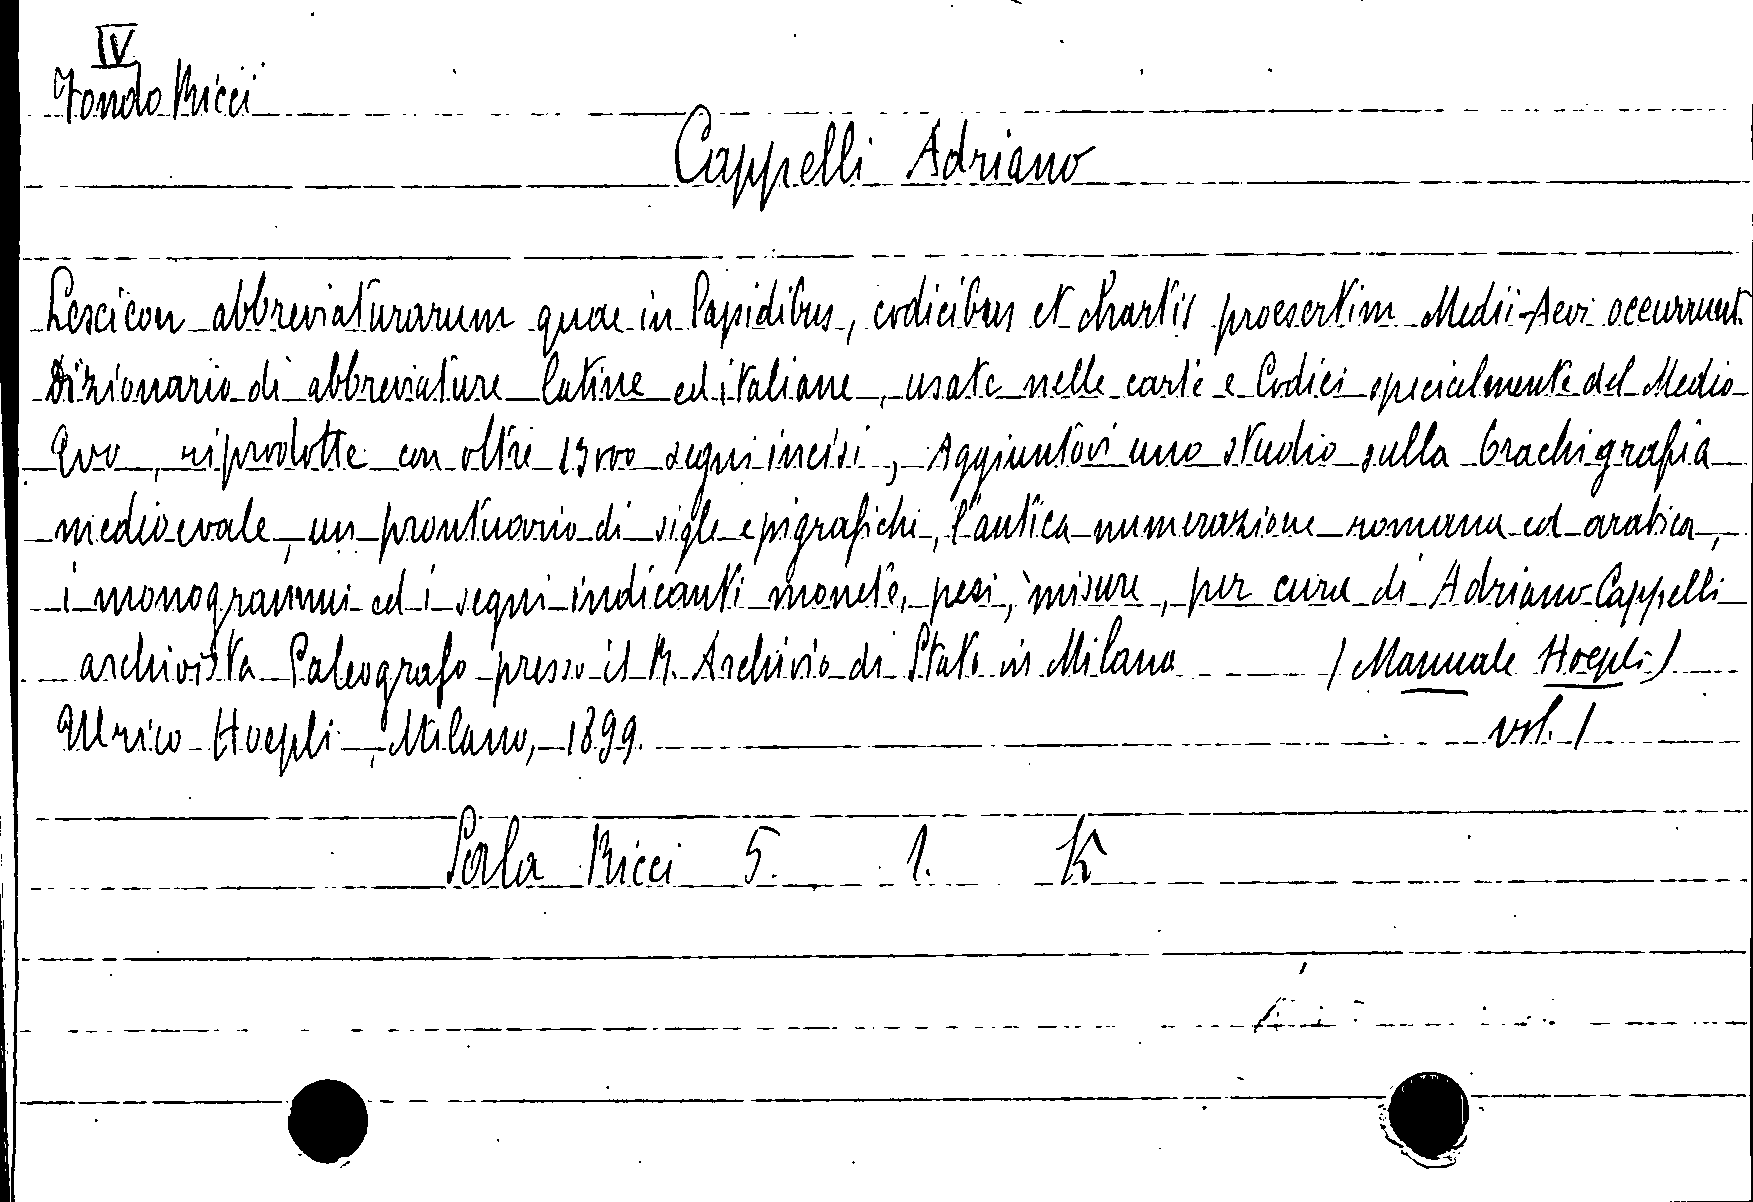 IV
Fondo Ricci
Cappelli Adriano
Lexicon abbreviaturarum quae in lapidibus, codicibus et chartis proesertim Medii-Aevi occurrunt.
Dizionario di abbreviature latine ed italiane, usate nelle carte e Codici specialmente del Medio
Evo, riprodotte con oltre 13000 segni incisi, Aggiuntovi uno studio sulla brachigrafia
medioevale, un prontuario di sigle epigrafichi, l'antica numerazione romana ed arabica,
i monogrammi ed i segni indicanti monete, pesi, misure, per cura di Adriano Cappelli
archivista Paleografo presso il R. Archivio di Stato in Milano (Manuale Hoepli)
Ulrico Hoepli, Milano, 1899. vol. 1
Sala Ricci 5. 1. K